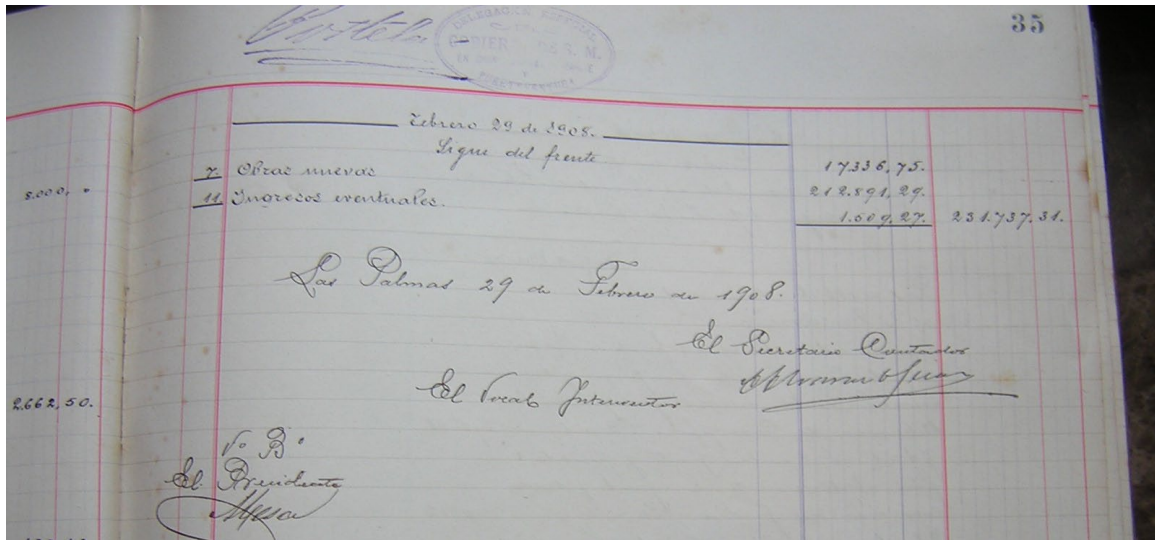 35
DELEGACIÓN ESPECIAL
Febrero 29 de 1908.
Sigue del frente 17336,75.
7. Obras nuevas 212.891,29.
8.000, "
11 Ingresos eventuales. 1.509,27. 231.737.31.
Las Palmas 29 de Febrero de 1908.
El Secretario Contador
El Vocal Interventor
2.662,50.
Vº Bº
El Presidente
Mesa